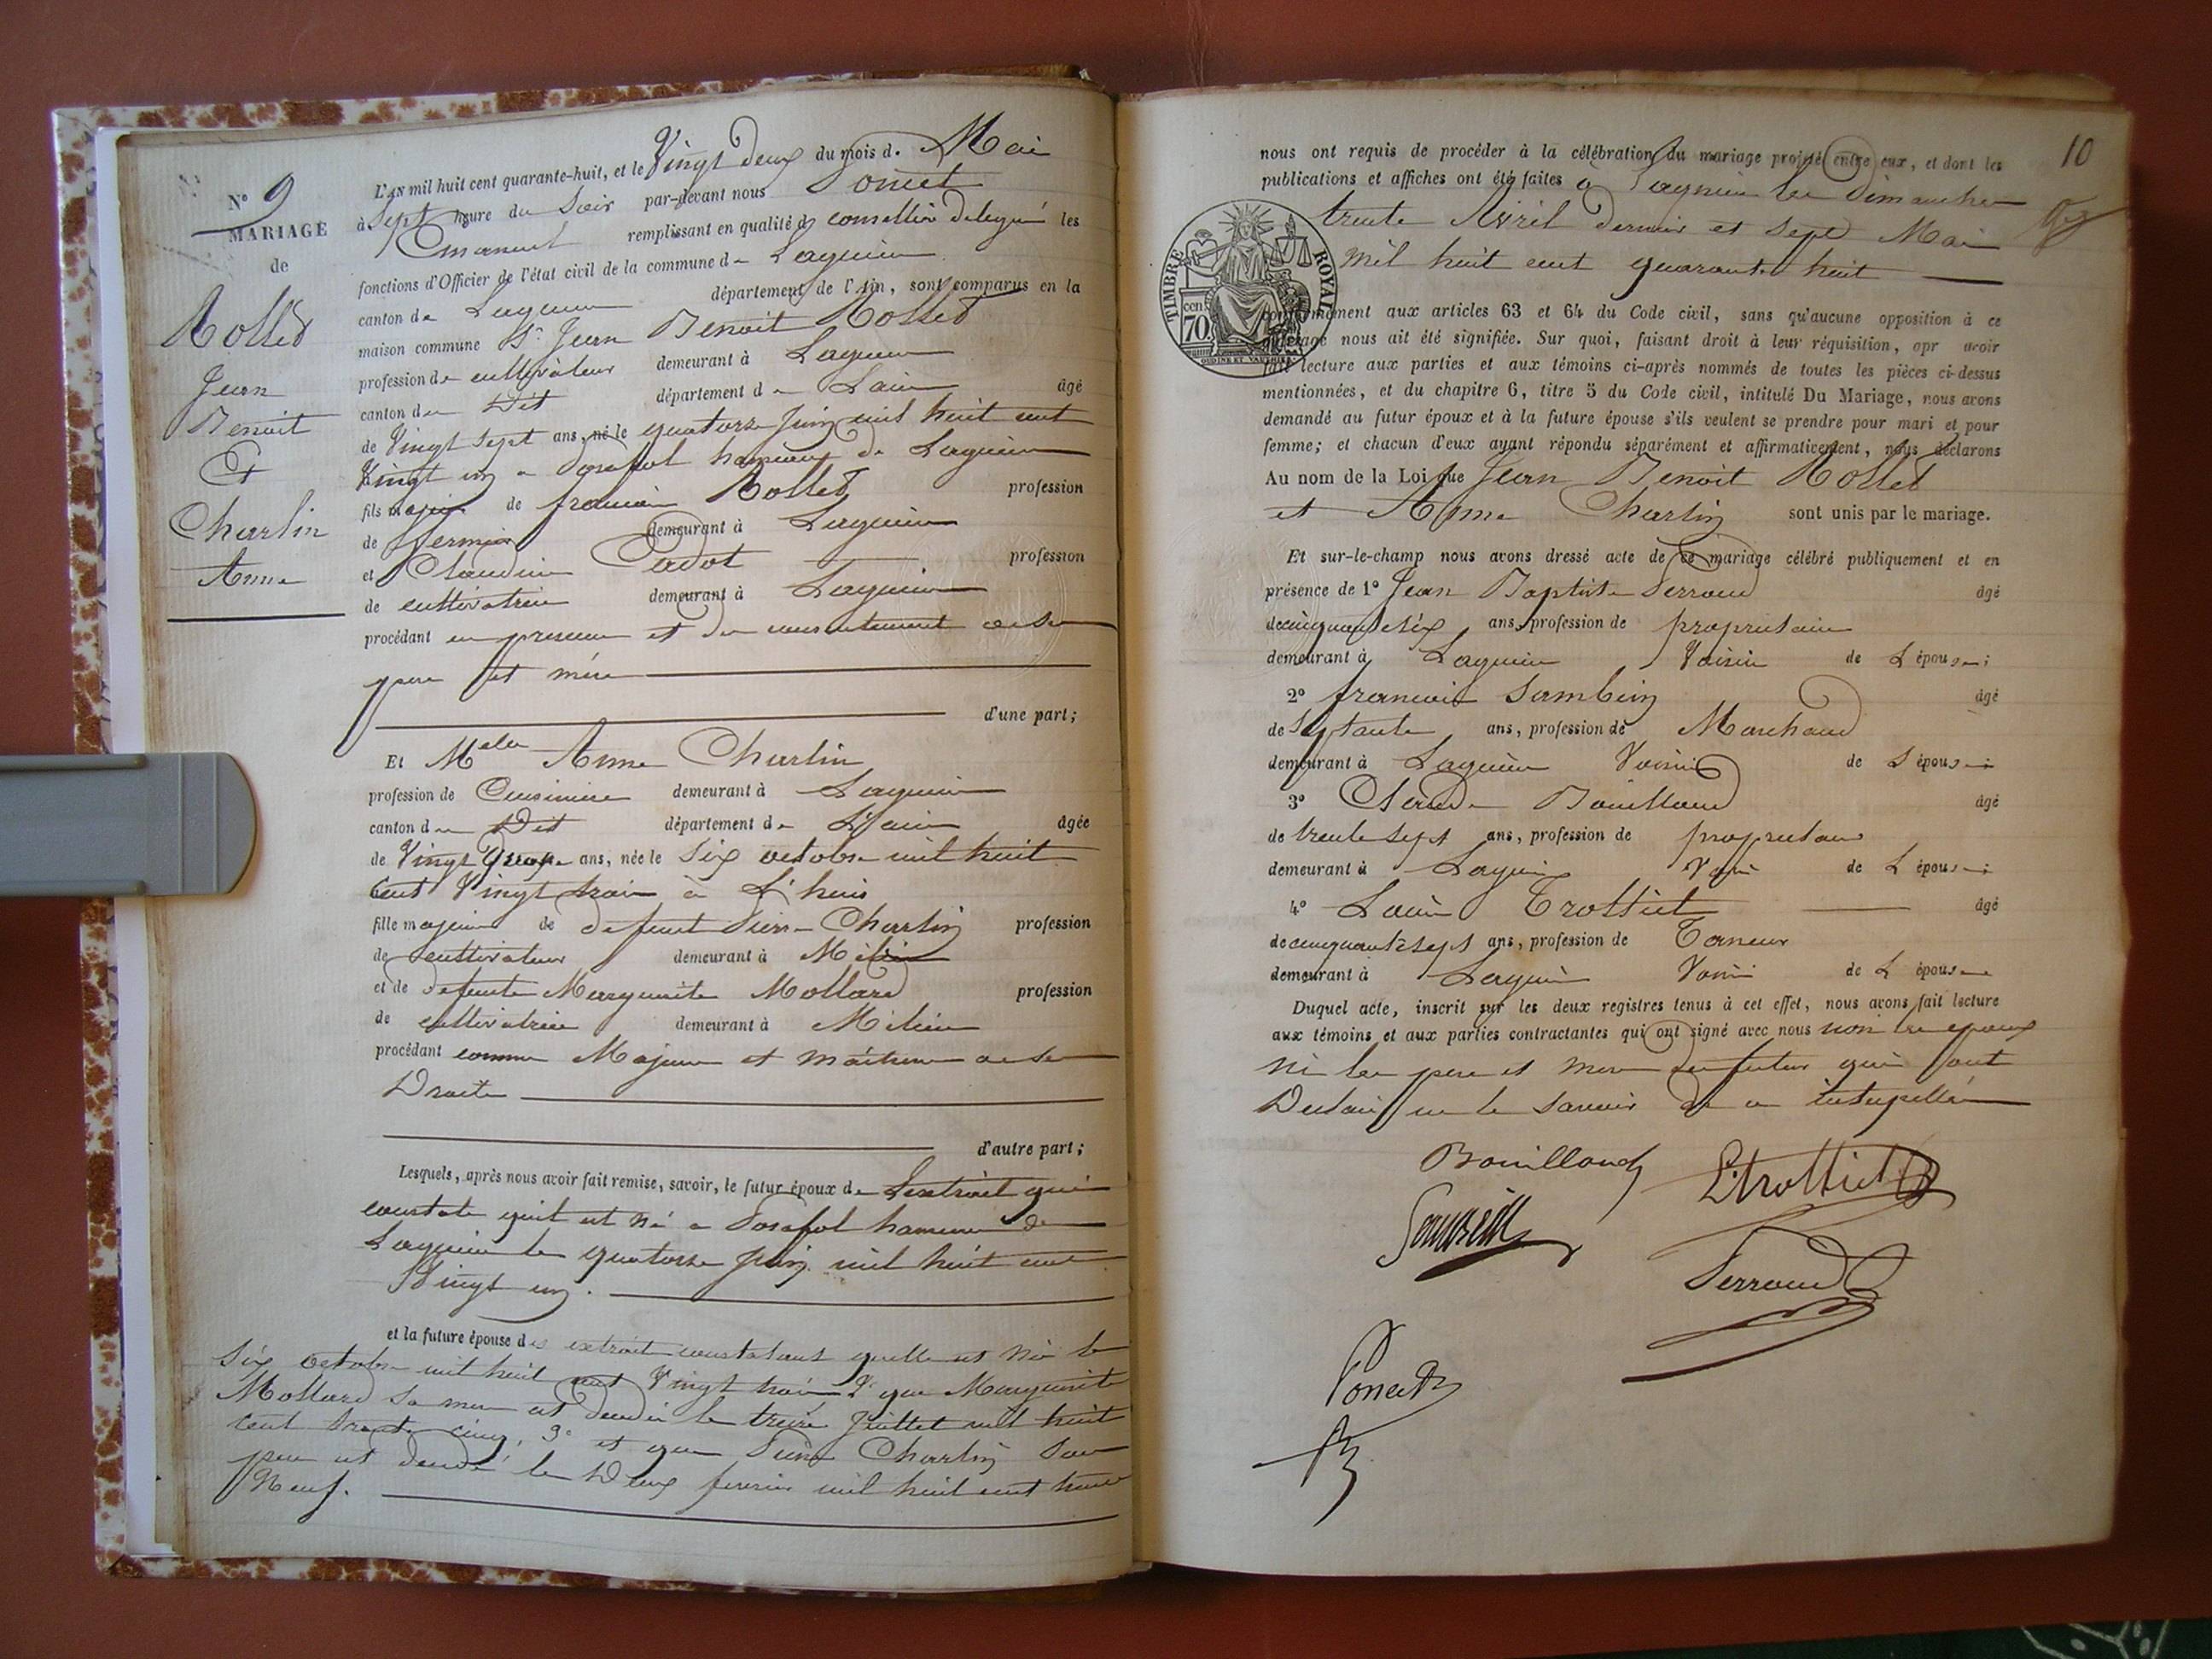 N° 9
MARIAGE
de
Rollet
Jean
Benoit
Et
Charlin
Anne
L'AN mil huit cent quarante-huit, et le Vingt deux du mois d. Mai
à Sept heure du Soir par-devant nous Ponset
Emanuel remplissant en qualité d conseiller delegué les
fonctions d'Officier de l'état civil de la commune de Lagnieu
canton de Lagnieu département de l'Ain, sont comparus en la
maison commune Sr. Jean Benoit Rollet
profession de cultivateur demeurant à Lagnieu
canton du Dit département de Lain âgé
de Vingt Sept ans, né le quatorze Juin mil huit cent
Vingt un a Posafol hameau de Lagnieu
fils majeur de francois Rollet profession
de fermier demeurant à Lagnieu
et Claudine profession
de cultivatrice demeurant à Lagnieu
procédant en presence et du consentement de Se
pere et mére
d'une part;
Et Melle Anne Charlin
profession de Cuisiniere demeurant à Lagnieu
canton du Dit département de L'ain âgée
de Vingt quatre ans, née le Six octobre mil huit
cent Vingt trois à L'huis
fille majeure de defunt Pierre Charlin profession
de cultivateur demeurant à
et de defunte Marguerite Mollard profession
de cultivatrice demeurant à
procédant comme Majeure et maitresse de Se
Droits
d'autre part;
Lesquels, après nous avoir fait remise, savoir, le futur époux de Lextrait qui
constate quil est né a Posafol hameau de
Lagnieu le quatorze Juin mil huit cent
Vingt un.
et la future épouse des extrait constatant quelle est née le
Six octobre mil huit cent Vingt trois 2° que Marguerite
Mollard Sa mere est decedée le treize Juillet mil huit
cent trente cinq, 3° et que Pierre Charlin Son
pere est decedé le Deux fevrier mil huit cent trente
Neuf.
10
nous ont requis de procéder à la célébration du mariage projeté entre eux, et dont les
publications et affiches ont été faites à Lagnieu les dimanches
trente Avril dernier et sept Mai
mil huit cent quarante huit
TIMBRE ROYAL
cen
70
conformément aux articles 63 et 64 du Code civil, sans qu'aucune opposition à ce
mariage nous ait été signifiée. Sur quoi, faisant droit à leur réquisition, apr avoir
fait lecture aux parties et aux témoins ci-après nommés de toutes les pièces ci-dessus
mentionnées, et du chapitre 6, titre 5 du Code civil, intitulé Du Mariage, nous avons
demandé au futur époux et à la future épouse s'ils veulent se prendre pour mari et pour
femme; et chacun d'eux ayant répondu séparément et affirmativement, nous déclarons
Au nom de la Loi que Jean Benoit Rollet
et Anne Charlin sont unis par le mariage.
Et sur-le-champ nous avons dressé acte de ce mariage célébré publiquement et en
présence de 1° Jean Baptiste Serraud âgé
de cinquante six ans, profession de proprietaire
demeurant à Lagnieu Voisin de L épouse;
2° francois Sambein âgé
de Septante ans, profession de Marchand
demeurant à Lagnieu Voisin de L épouse;
3° Claude Bouilloud âgé
de trente sept ans, profession de proprietaire
demeurant à Lagnieu Voisin de L épouse;
4° Louis Trottiet âgé
de cinquante sept ans, profession de Taneur
demeurant à Lagnieu Voisin de L épouse
Duquel acte, inscrit sur les deux registres tenus à cet effet, nous avons fait lecture
aux témoins et aux parties contractantes qui ont signé avec nous non les epoux
Ni les pere et mere du futur qui ont
Declaré ne le Savoir de ce interpellés
Bouilloud Ltrottiet
Serraud
Ponset